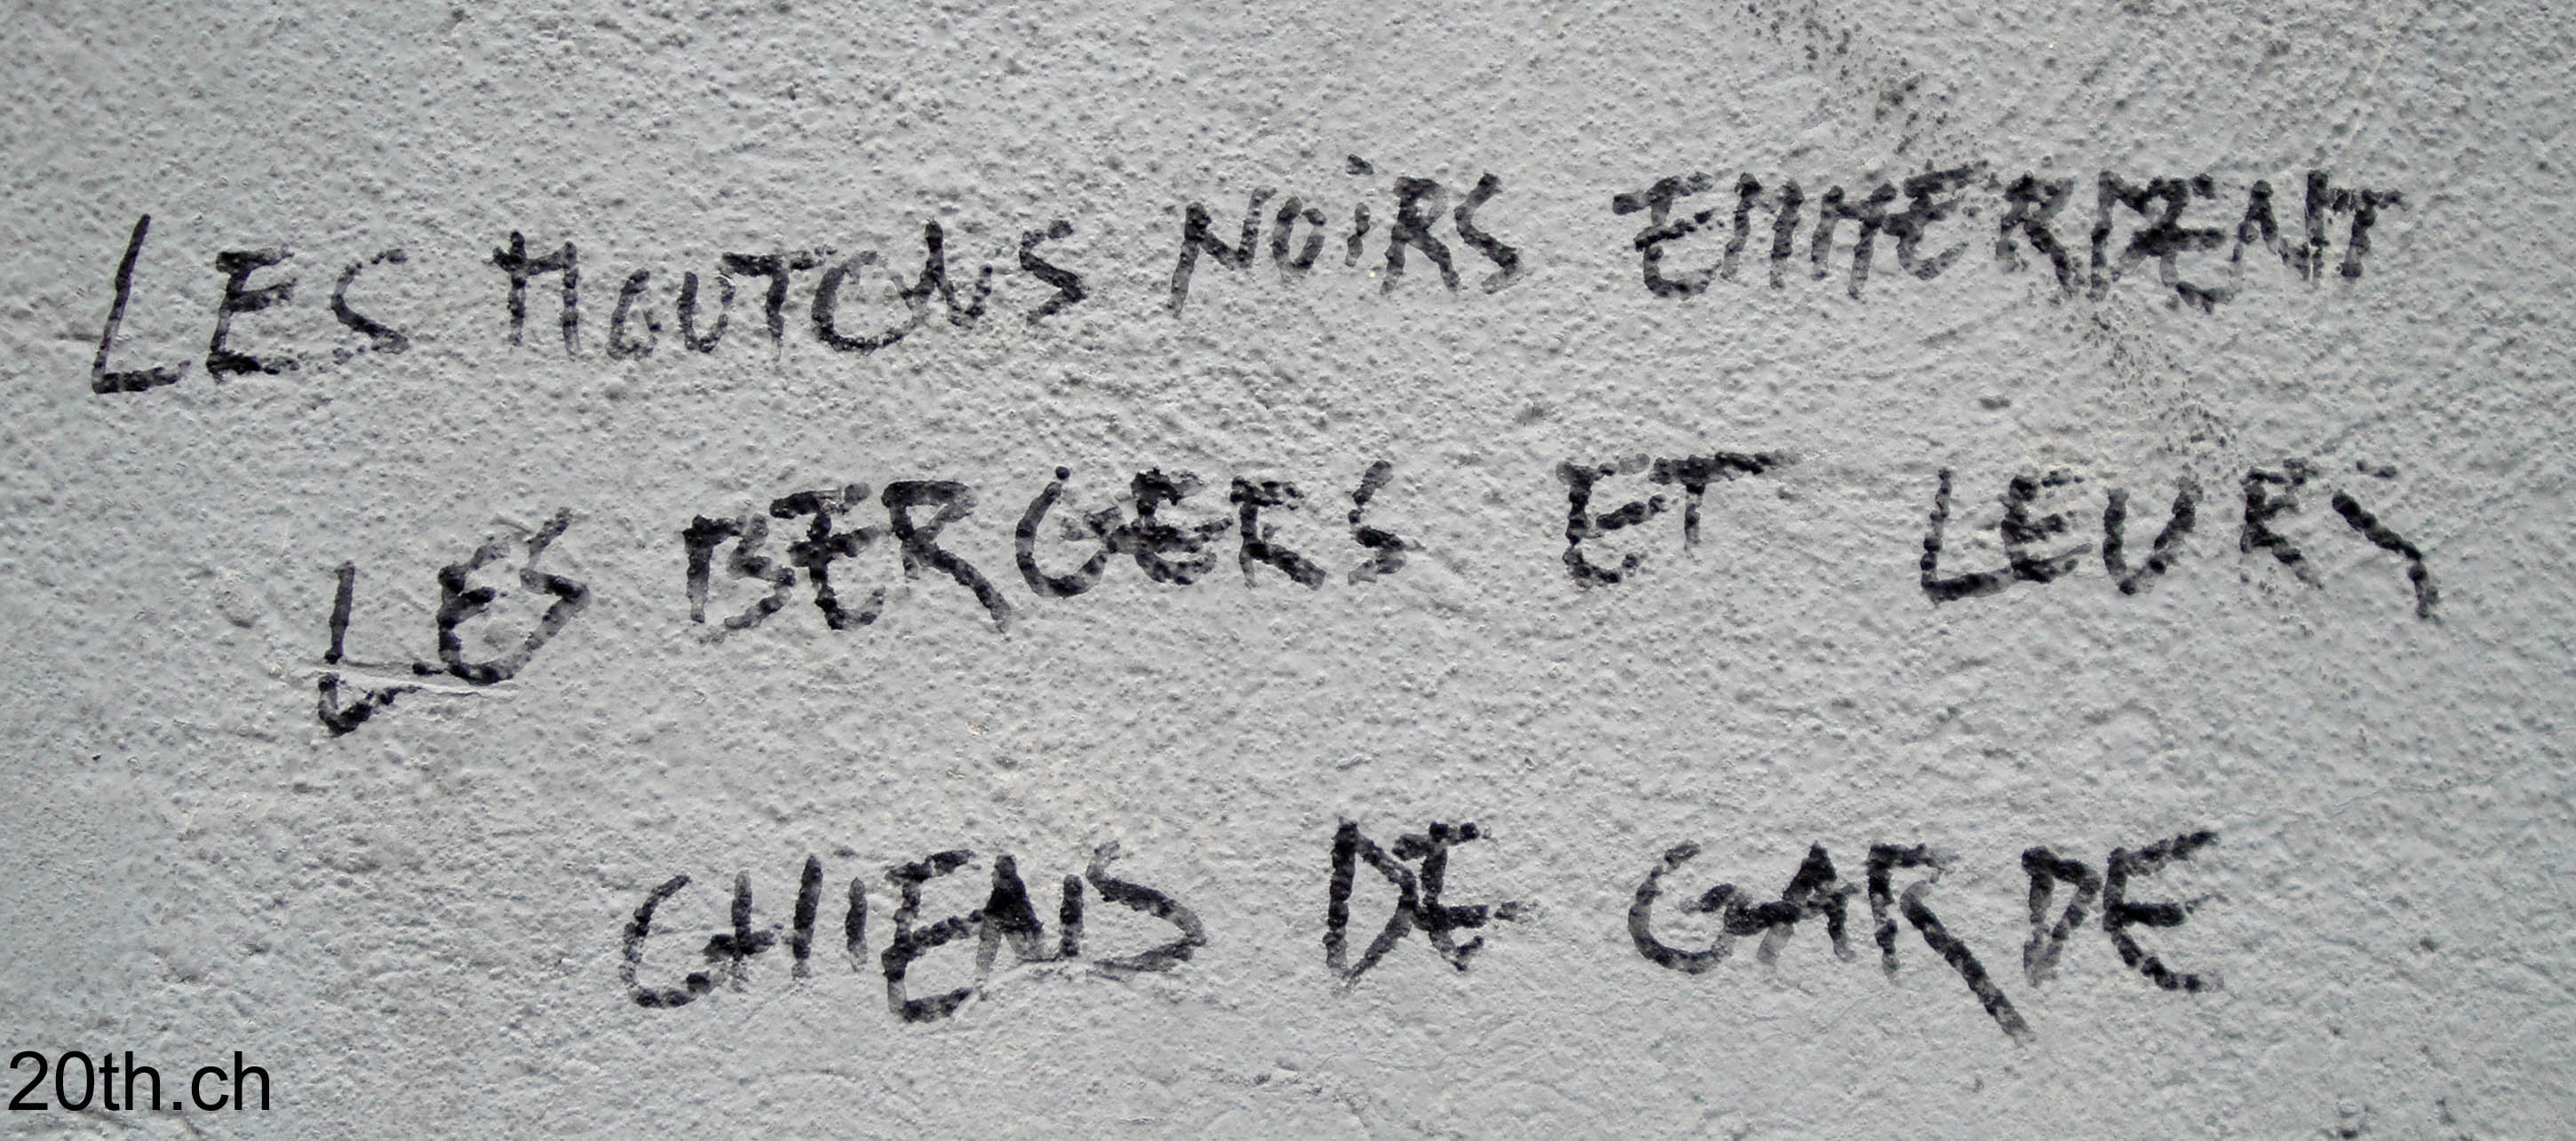 LES MOUTONS NOIRS EMMERDENT
LES BERGERS ET LEURS
CHIENS DE GARDE
20th.ch